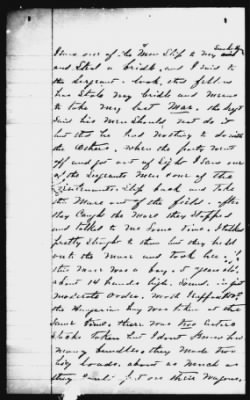 I saw one of the Men Slip to my
and Steal a bridle, and I said to
the Sergeant. look, that fellow
has Stole my bridle and Means
to take my last Mare. the Sergt
Said his men Should not do it
but that he had nothing to do with
the Others. when the party went
off and got out of Sight I Saw one
of the Sergeants Men & one of the
Lieutenants. Slip back and take
the Mare out of the field. after
they Caught the Mare they Stopped
and talked to me Some time. I talked
pretty Straight to them but they held
onto the Mare and took her.
this Mare was a bay, 4 years old,
about 14 hands high, Sound. in good
moderate order, worth
the bay was taken at the
Same time. there was two
Stacks taken but I dont know how
many bundles. they made two
big loads. about as much as
they on their Wagons.